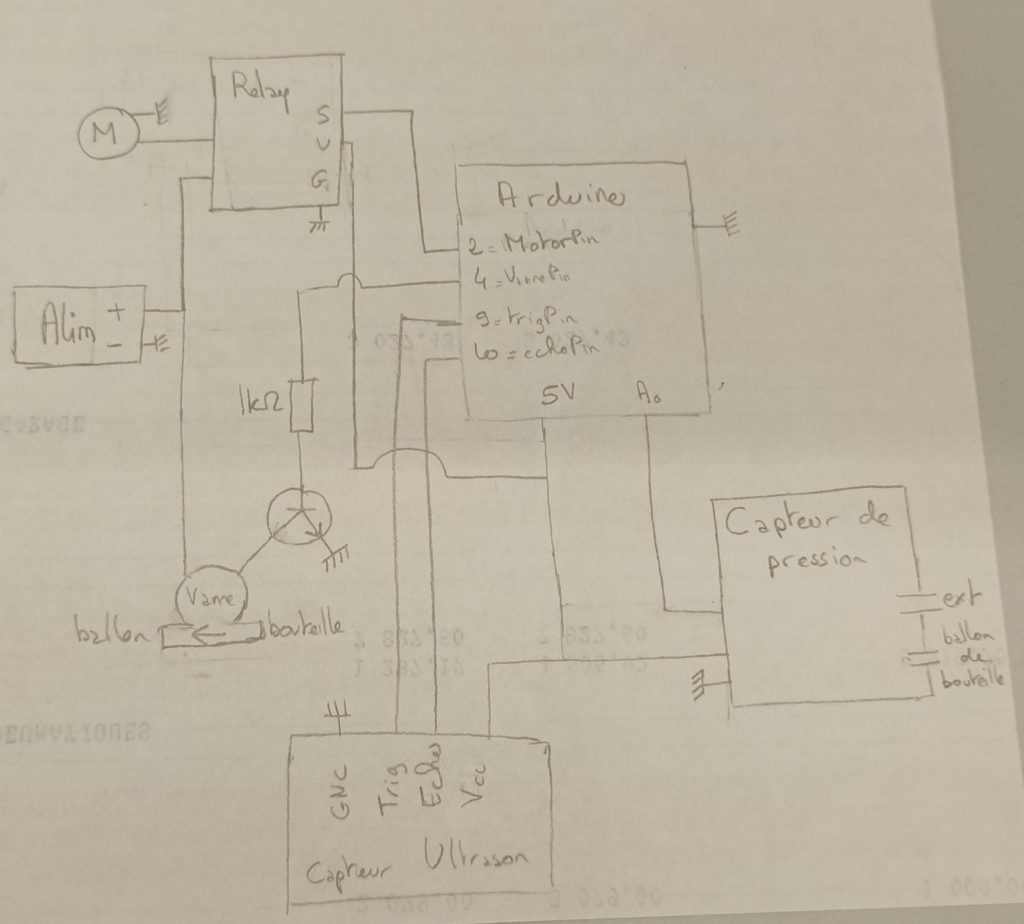 Relay
S
M
V
G
Arduino
2=MotorPin
4=VannePin
Alim + -
9=trigPin
10=echoPin
1kΩ
5V
A0
Capteur de
pression
Vanne
ext
ballon
bouteille
ballon
de
bouteille
GNC
Trig
Echo
Vcc
Capteur Ultrason